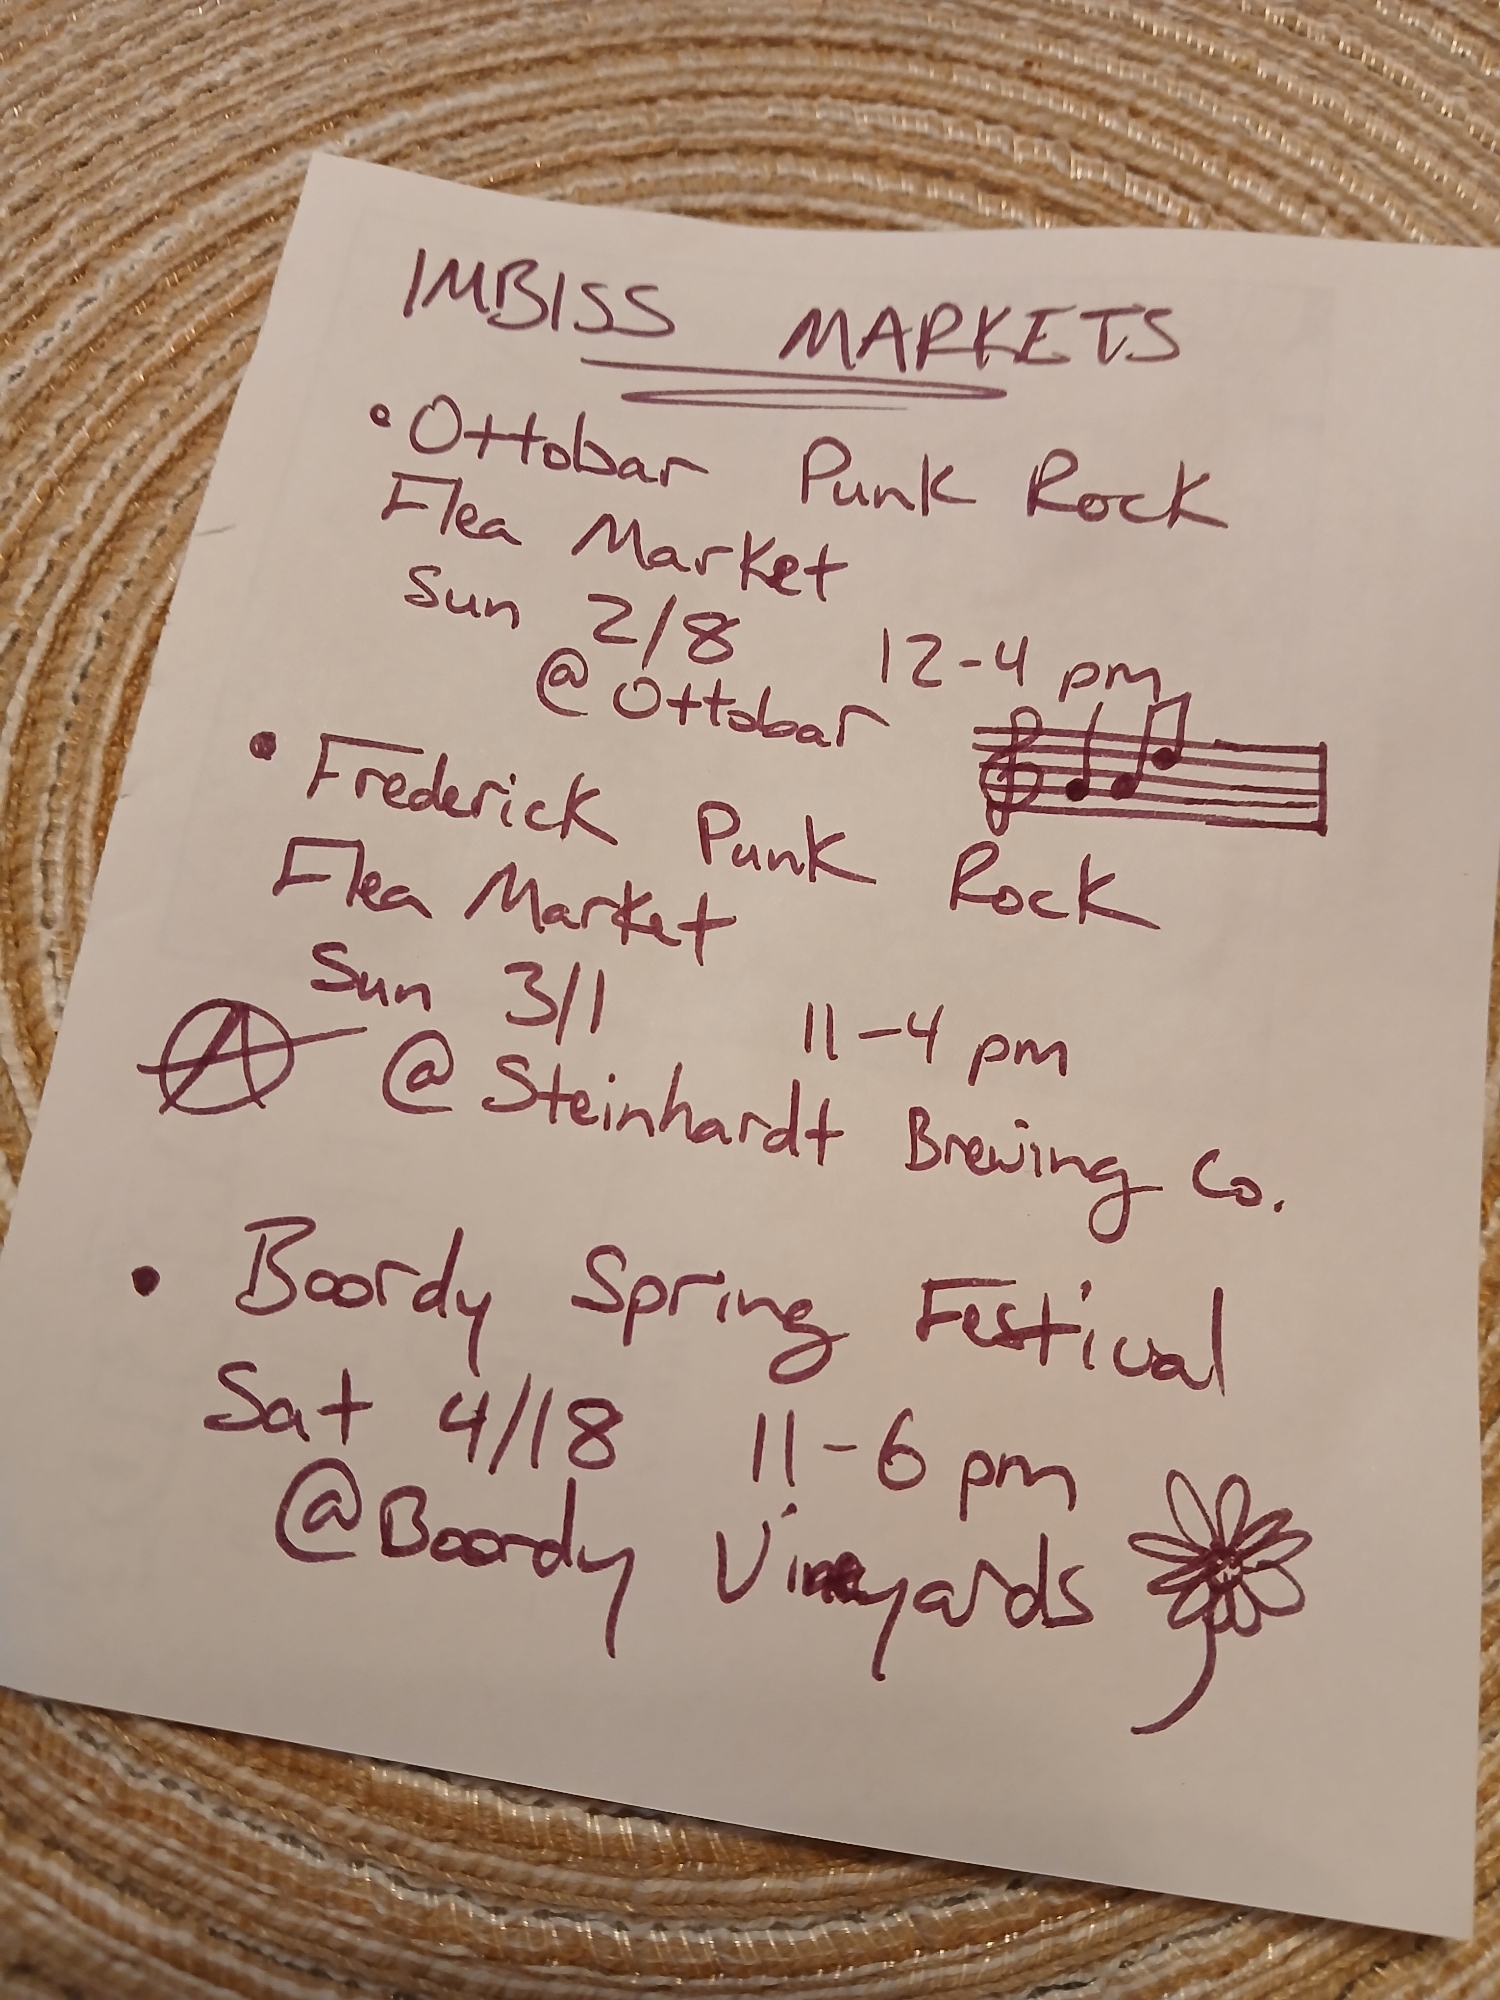 IMBISS MARKETS
• Ottobar Punk Rock
Flea Market
Sun 2/8 12-4 pm
@ Ottobar
• Frederick Punk Rock
Flea Market
Sun 3/1 11-4 pm
@ Steinhardt Brewing Co.
• Boordy Spring Festival
Sat 4/18 11-6 pm
@ Boordy Vineyards